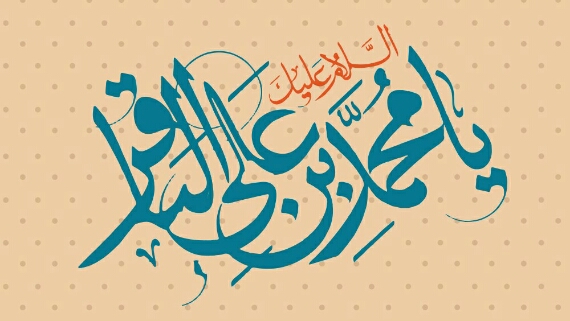 السَّلامُ عَلَيكَ
يا مُحمّدَ بن عَلي الباقر